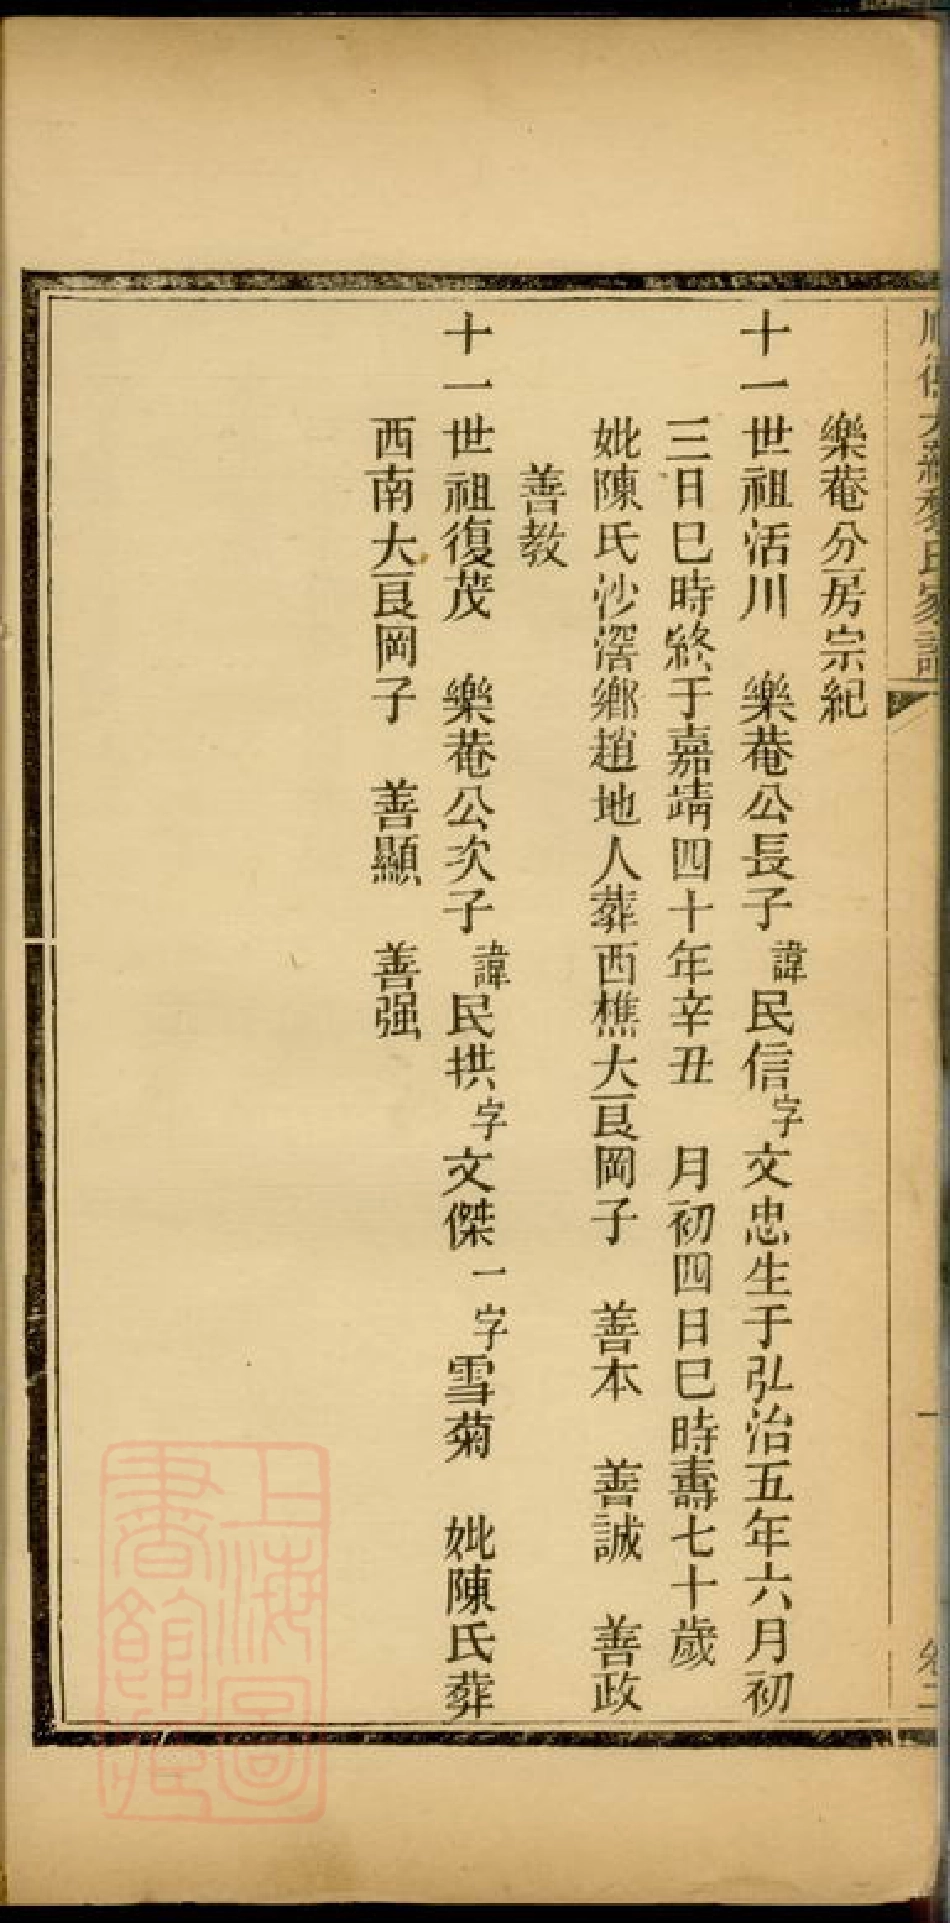 樂菴分房宗紀
十一世祖活川　樂菴公長子諱民信字文忠生于弘治五年六月初
三日巳時終于嘉靖四十年辛丑　月初四日巳時壽七十歲
妣陳氏沙滘鄉趙地人葬西樵大艮岡子　善本　善誠　善政
善教
十一世祖復茂　樂菴公次子諱民拱字文傑一字雪菊　妣陳氏葬
西南大艮岡子　善顯　善强
上海圖
書館藏